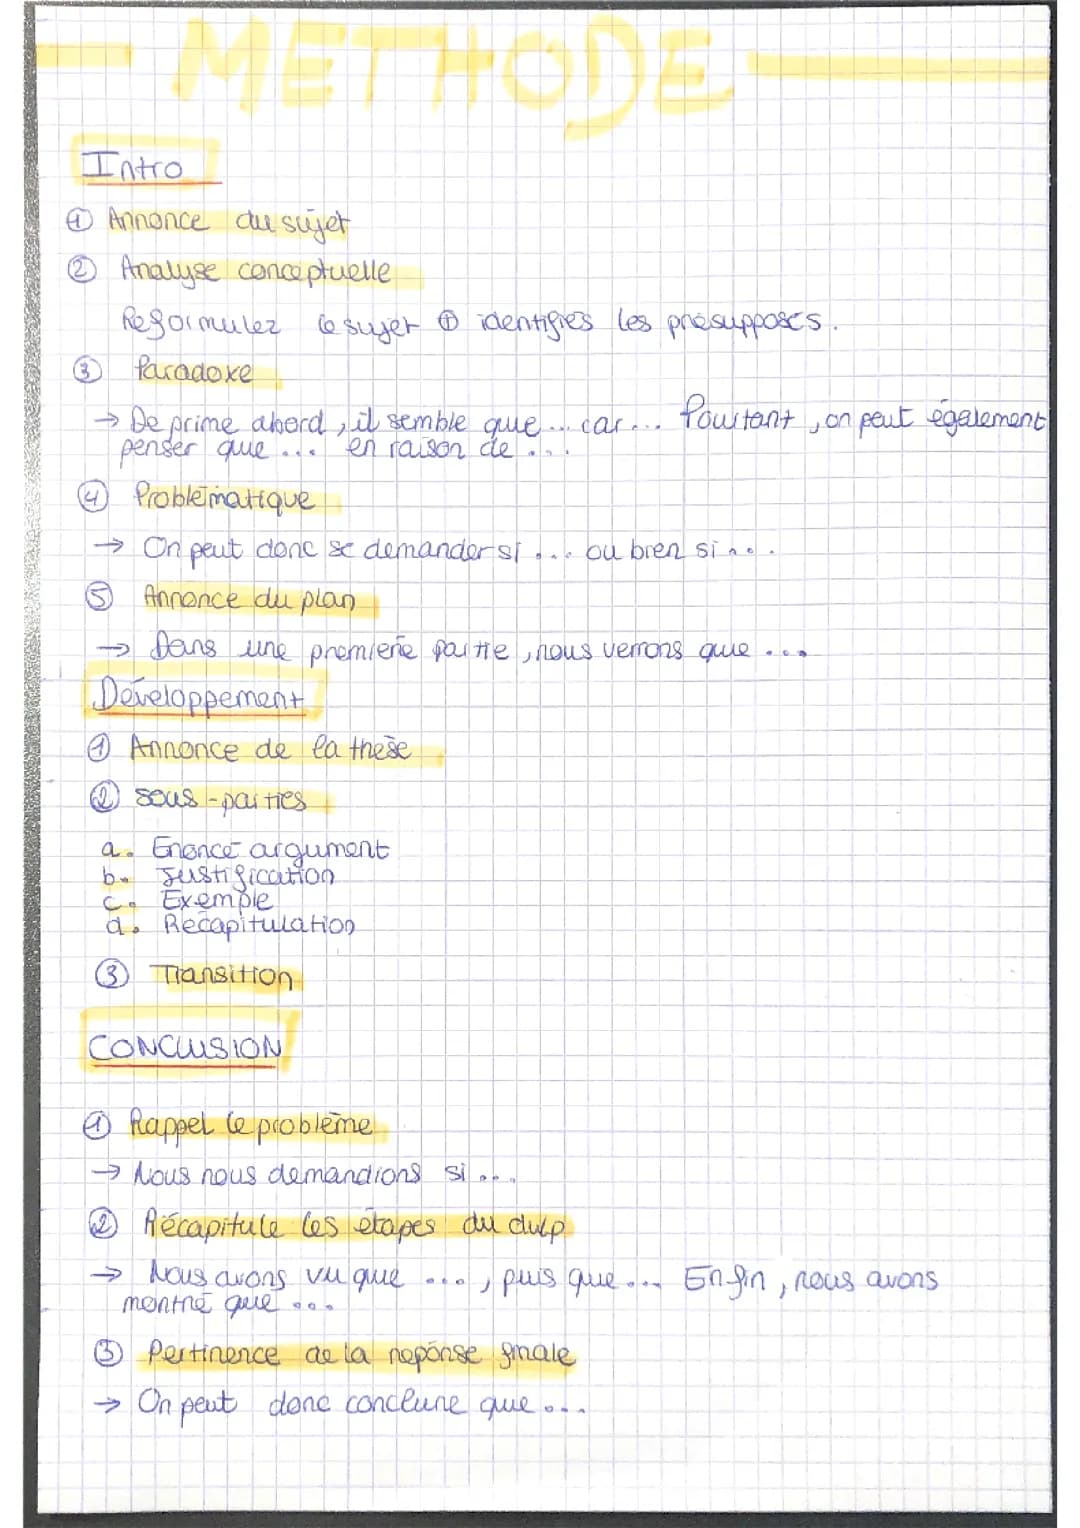 METHODE
Intro
① Annonce du sujet
② Analyse conceptuelle
Reformulez le sujet ⊕ identifies les présupposés.
③ Paradoxe
→ De prime abord, il semble que... car... Pourtant, on peut également
penser que ... en raison de ...
④ Problématique
→ On peut donc se demander si ... ou bien si ...
⑤ Annonce du plan
→ Dans une première partie, nous verrons que ...
Développement
① Annonce de la thèse
② sous-parties
a. Enoncé argument
b. Justification
c. Exemple
d. Récapitulation
③ Transition
CONCLUSION
① Rappel le problème
→ Nous nous demandions si ...
② Récapitule les étapes du dvlp
→ Nous avons vu que ..., puis que ... Enfin, nous avons
montré que ...
③ Pertinence de la réponse finale
→ On peut donc conclure que ...